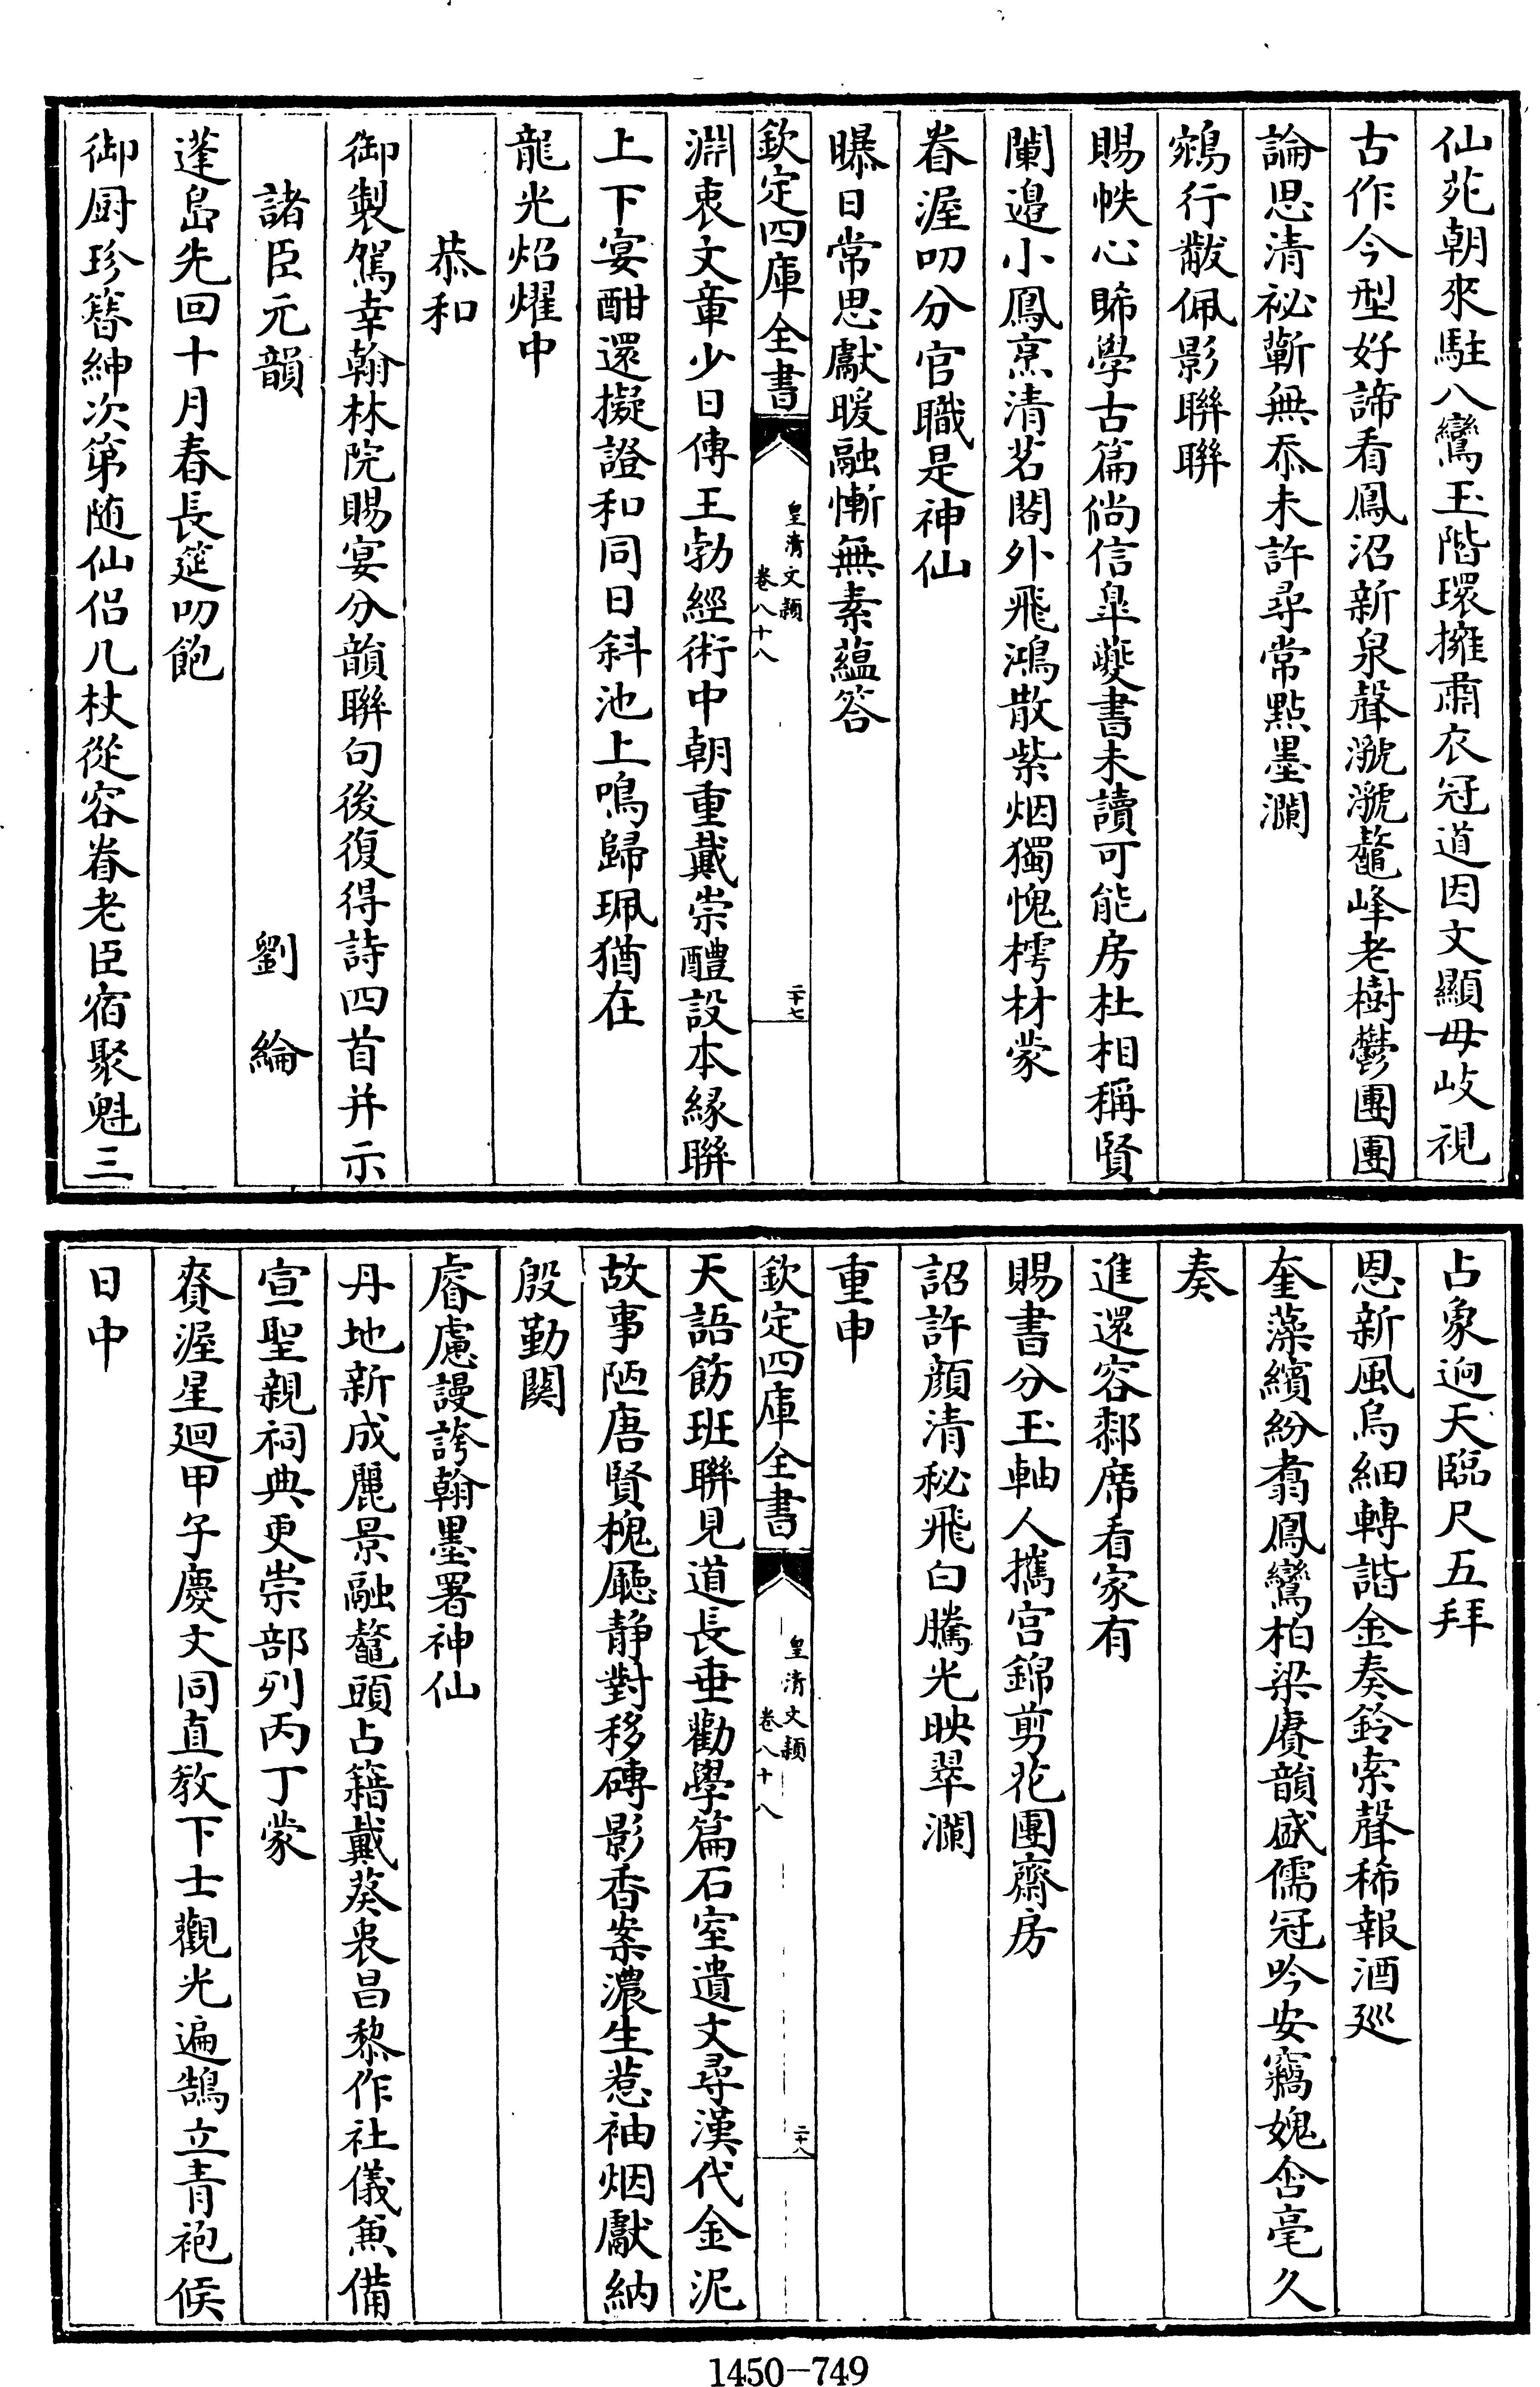 仙苑朝來駐八鸞玉階環擁肅衣冠道因文顯毋岐視
古作今型好諦看鳳沼新泉聲㶁㶁鼇峰老樹鬱團團
論思清祕蘄無忝未許尋常點墨瀾
鵷行黻佩影聯聯
賜帙心睎學古篇尚信臯夔書未讀可能房杜相稱賢
闌邉小鳳烹清茗閣外飛鴻散紫烟獨愧樗材蒙
眷渥叨分官職是神仙
曝日常思獻暖融慚無素蘊答
欽定四庫全書
皇清文穎
卷八十八
二十七
淵衷文章少日傳王勃經術中朝重戴崇醴設本縁聯
上下宴酣還擬證和同日斜池上鳴歸珮猶在
龍光炤燿中
恭和
御製駕幸翰林院賜宴分韻聯句後復得詩四首并示
諸臣元韻
劉綸
蓬島先回十月春長筵叨飽
御厨珍簪紳次第随仙侣几杖從容眷老臣宿聚魁三
占象逈天臨尺五拜
恩新風烏細轉諧金奏鈴索聲稀報酒廵
奎藻繽紛翥鳳鸞柏梁賡韻盛儒冠吟安竊媿含毫久
奏
進還容郄席看家有
賜書分玉軸人攜宫錦剪花團齋房
詔許顔清秘飛白騰光映翠瀾
重申
欽定四庫全書
皇清文穎
卷八十八
二十八
天語飭班聯見道長垂勸學篇石室遺文尋漢代金泥
故事陋唐賢槐廳静對移磚影香案濃生惹袖烟獻納
殷勤関
睿慮謾誇翰墨署神仙
丹地新成麗景融鼇頭占籍戴葵衷昌黎作社儀兼備
宣聖親祠典更崇部列丙丁蒙
賚渥星廻甲子慶文同直教下士觀光遍鵠立青袍候
日中
1450-749